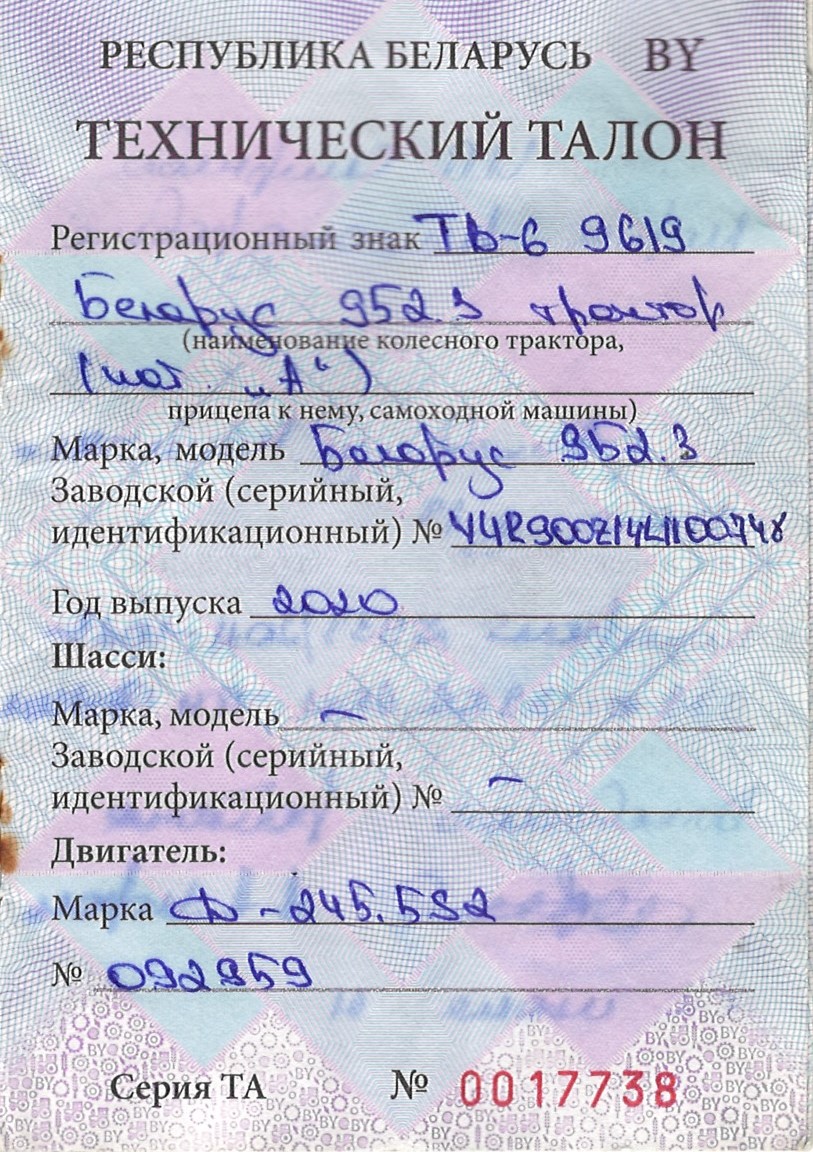 РЕСПУБЛИКА БЕЛАРУСЬ BY
ТЕХНИЧЕСКИЙ ТАЛОН
Регистрационный знак ТЬ-6 9619
Беларус 952.3 трактор
(наименование колесного трактора,
(кат. „А“)
прицепа к нему, самоходной машины)
Марка, модель Беларус 952.3
Заводской (серийный,
идентификационный) № Y4R900Z14L1100748
Год выпуска 2020
Шасси:
Марка, модель —
Заводской (серийный,
идентификационный) № —
Двигатель:
Марка Д-245.5S2
№ 092959
Серия ТА № 0017738